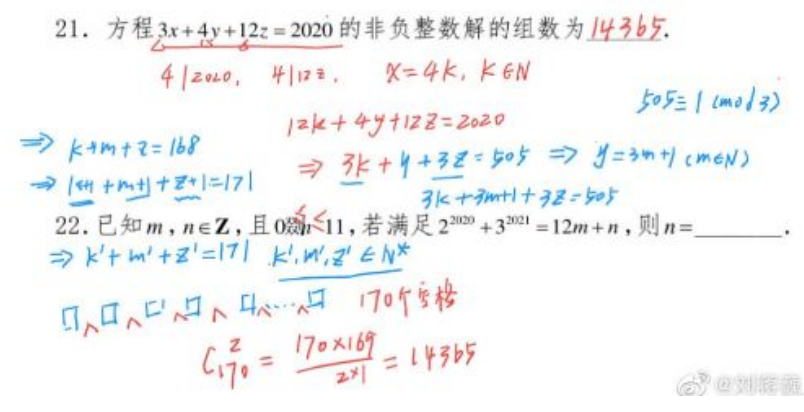 21. 方程3x+4y+12z=2020的非负整数解的组数为14365.
4|2020, 4|12z, x=4k, k∈N
505≡1 (mod 3)
12k+4y+12z=2020
⇒ k+m+z=168
⇒ 3k+y+3z=505 ⇒ y=3m+1 (m∈N)
⇒ k+1+m+1+z+1=171
3k+3m+1+3z=505
22. 已知m,n∈Z,且0≤n≤11,若满足2^2020+3^2021=12m+n,则n=________.
⇒ k'+m'+z'=171 k',m',z'∈N*
□∧□∧□∧□∧□∧……∧□ 170个空格
C²₁₇₀ = 170×169/2×1 = 14365